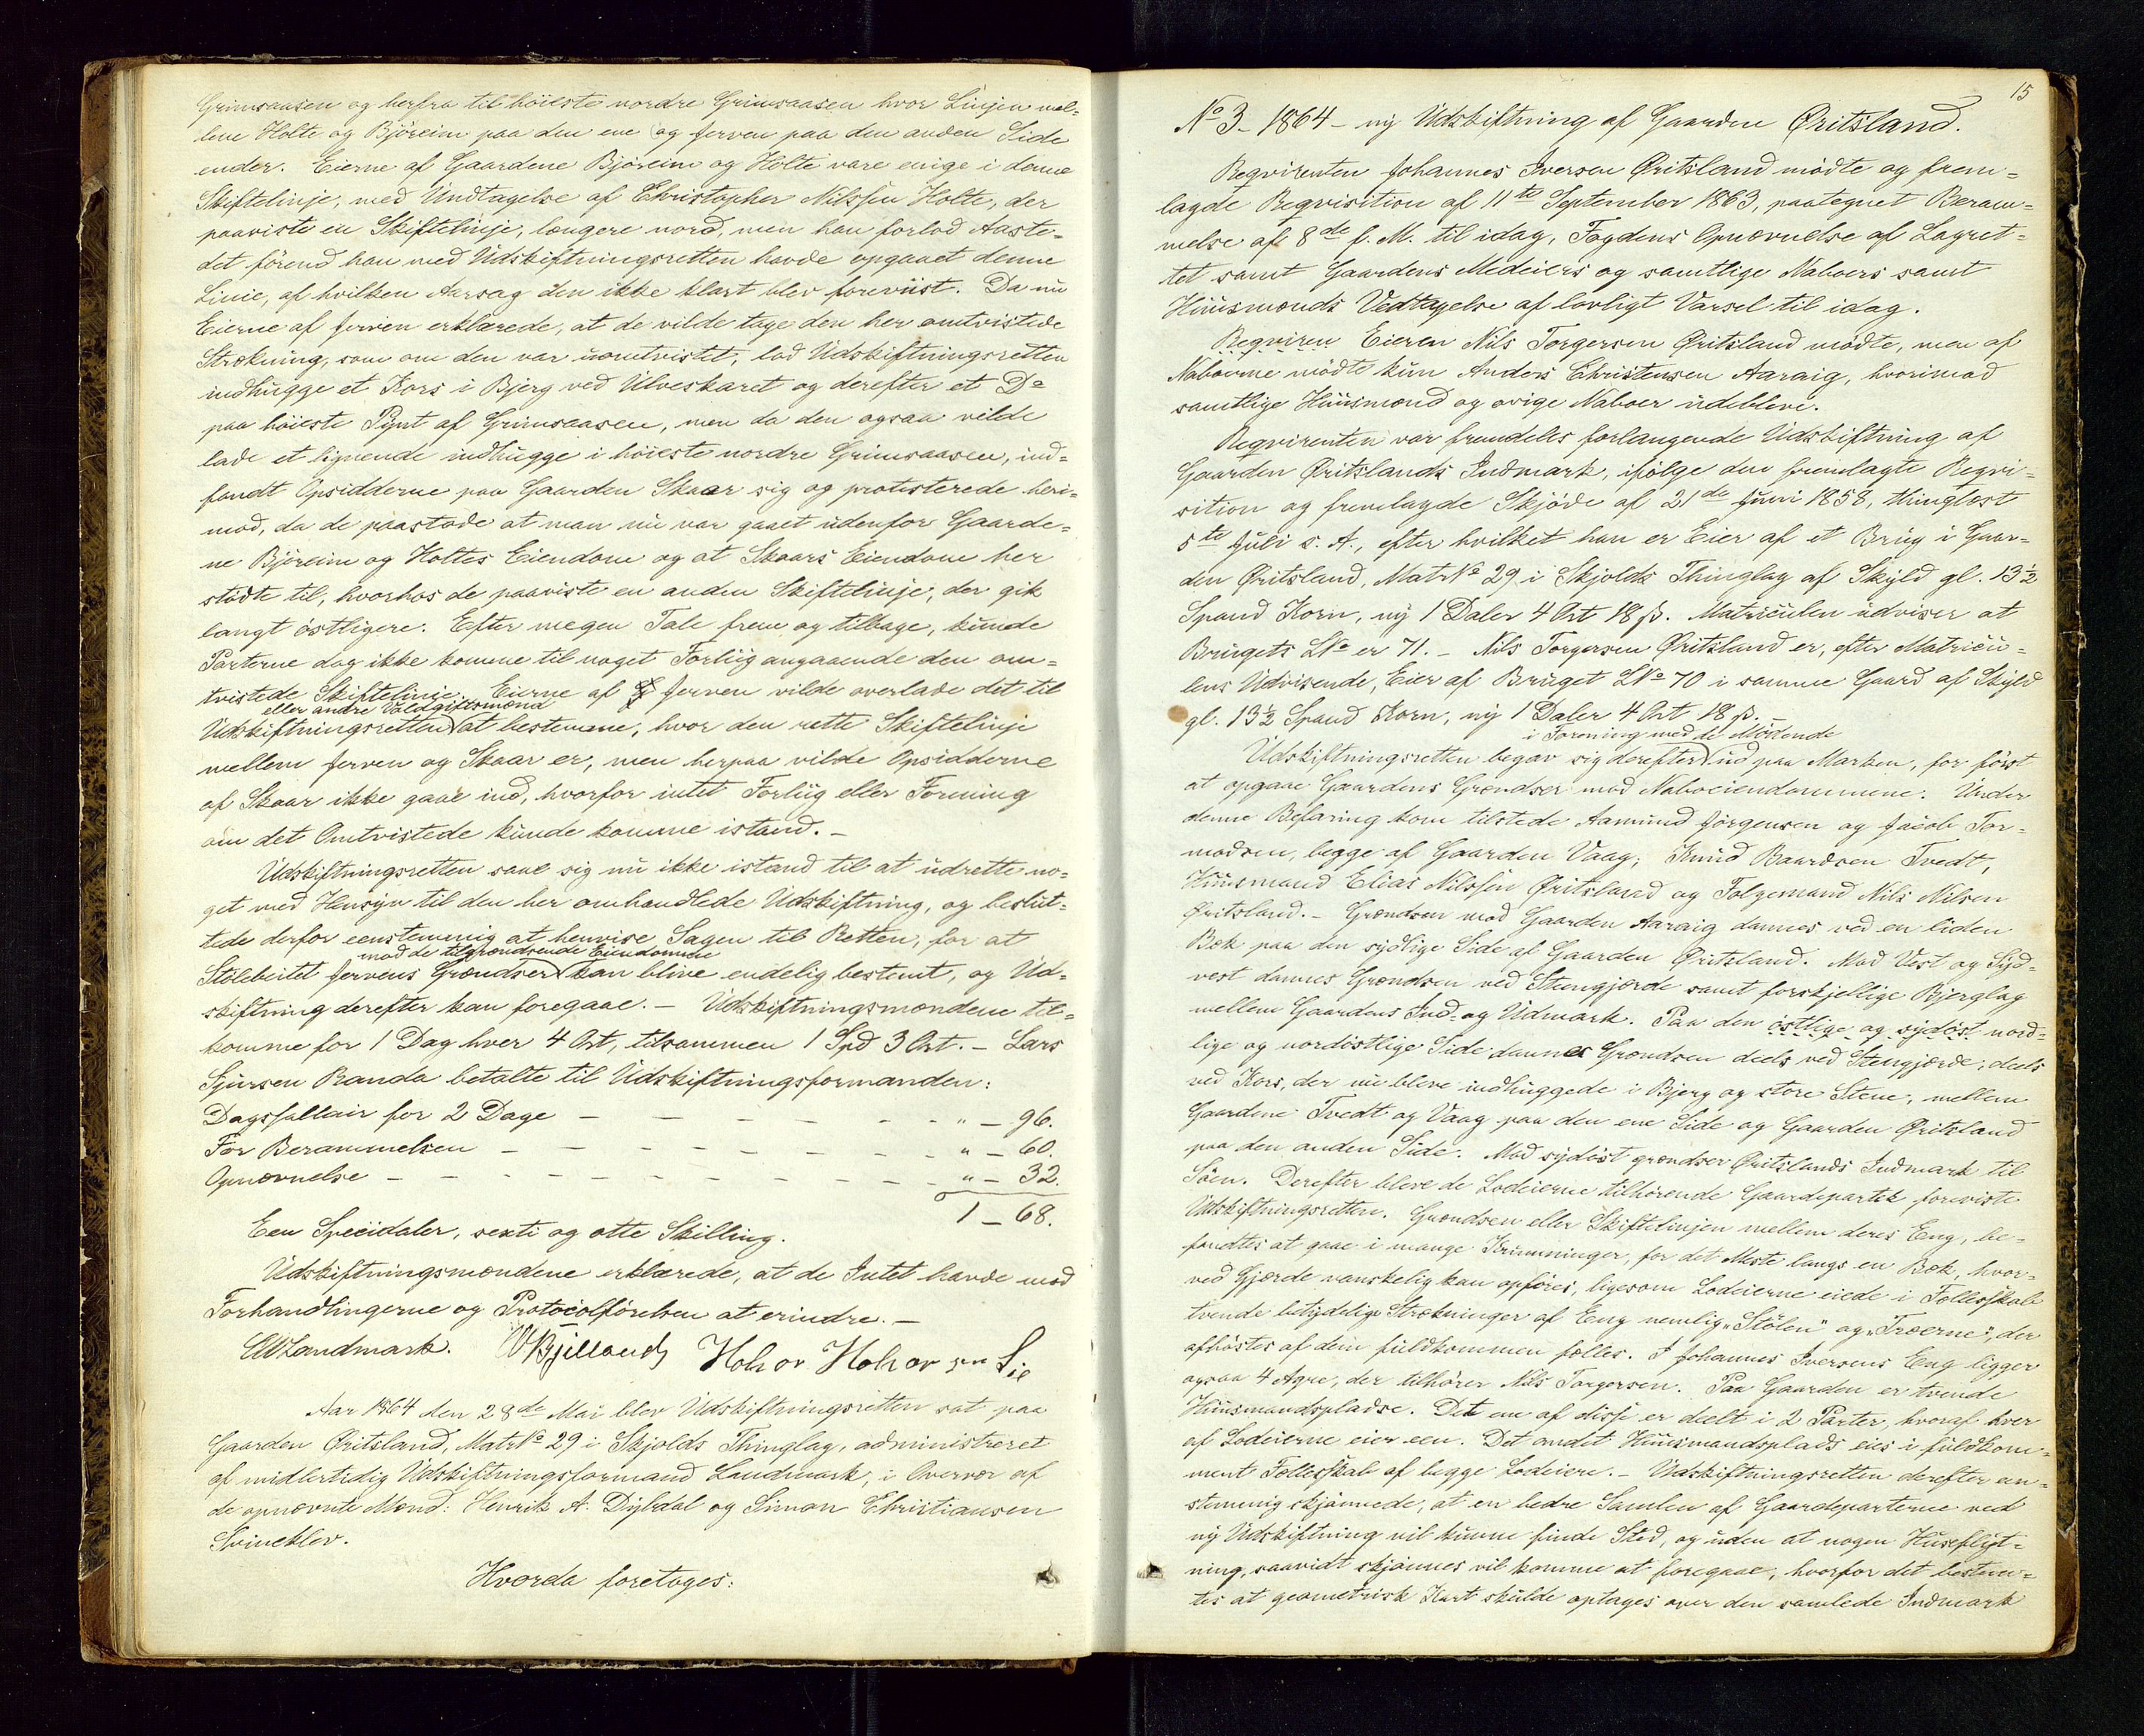 Grimsaasen og herfra til höieste nordre Grimsaasen hvor Linjen mel-
lem Holte og Björeim paa den ene og Jerven paa den anden Side
ender. Eierne af Gaardene Björeim og Holte vare enige i denne
Skiftelinje, med Undtagelse af Christopher Nilssen Holte, der
paaviste en Skiftelinje, længere nord, men han forlod Aaste-
det förend han med Udskiftningsretten havde opgaaet denne
Linie, af hvilken Aarsag den ikke klart blev foreviist. Da nu
Eierne af Jerven erklærede, at de vilde tage den her omtvistede
Strækning, som om den var uomtvistet, lod Udskiftningsretten
indhugge et Kors i Bjerg ved Ulveskaret og derefter et Do
paa höieste Pynt af Grimsaasen, men da den ogsaa vilde
lade et lignende indhugge i höieste nordre Grimsaasen, ind-
fandt Opsidderne paa Gaarden Skaar sig og protesterede heri-
mod, da de paastode at man nu var gaaet udenfor Gaarde-
ne Björeim og Holtes Eiendom og at Skaars Eiendom her
stödte til, hvorhos de paaviste en anden Skiftelinje, der gik
langt östligere. Efter megen Tale frem og tilbage, kunde
Parterne dog ikke komme til noget Forliig angaaende den om-
tvistede Skiftelinie. Eierne af Jerven vilde overlade det til
eller andre Voldgiftsmænd
Udskiftningsretten at bestemme, hvor den rette Skiftelinje
mellem Jerven og Skaar er, men herpaa vilde Opsidderne
af Skaar ikke gaae ind, hvorfor intet Forliig eller Forening
om det Omtvistede kunde komme istand. –
Udskiftningsretten saae sig nu ikke istand til at udrette no-
get med Hensyn til den her omhandlede Udskiftning, og beslut-
tede derfor eenstemmig at henvise Sagen til Retten, for at
mod de tilgrændsende Eiendomme
Stölebeitet Jervens Grændser kan blive endelig bestemt, og Ud-
skiftning derefter kan foregaae. – Udskiftningsmændene til-
komme for 1 Dag hver 4 Ort, tilsammen 1 Spd 3 Ort. – Lars
Sjursen Randa betalte til Udskiftningsformanden:
Dagsfallair for 2 Dage – – – – – – " – 96.
For Berammelsen – – – – – – – " – 60.
Opnævnelse – – – – – – – – – " – 32.
1 – 68.
Een Specidaler, sexti og otte Skilling.
Udskiftningsmændene erklærede, at de Intet havde mod
Forhandlingerne og Protocolförelsen at erindre. –
Landmark.
Aar 1864 den 28de Mai blev Udskiftningsretten sat paa
Gaarden Öritsland, MatrNo 29 i Skjolds Thinglag, administreret
af midlertidig Udskiftningsformand Landmark, i Overvær af
de opnævnte Mænd: Henrik A. Dybdal og Simon Christiansen
Svineklev.
Hvorda foretoges:
15
No 3 – 1864 – ny Udskiftning af Gaarden Öritsland.
Reqvirenten Johannes Iversen Öritsland mödte og frem-
lagde Reqvisition af 11te September 1863, paategnet Beram-
melse af 8de f. M. til idag, Fogdens Opnævnelse af Lagret-
tet samt Gaardens Medeiers og samtlige Naboers samt
Huusmænds Vedtagelse af lovligt Varsel til idag.
Reqviren Eieren Nils Torgersen Öritsland mödte, men af
Naboerne mödte kun Anders Christensen Aaraig, hvorimod
samtlige Huusmænd og övrige Naboer udebleve.
Reqvirenten var fremdeles forlangende Udskiftning af
Gaarden Öritslands Indmark, ifölge den fremlagte Reqvi-
sition og fremlagde Skjöde af 21de Juni 1858, thinglæst
5te Juli s. A., efter hvilket han er Eier af et Brug i Gaar-
den Öritsland, MatrNo 29 i Skjolds Thinglag af Skyld gl. 13½
Spand Korn, ny 1 Daler 4 Ort 18 ß. Matriculen udviser at
Brugets LNo er 71. – Nils Torgersen Öritsland er, efter Matricu-
lens Udvisende, Eier af Bruget LNo 70 i samme Gaard af Skyld
gl. 13½ Spand Korn, ny 1 Daler 4 Ort 18 ß. –
i Forening med de Mödende
Udskiftningsretten begav sig derefter ud paa Marken, for först
at opgaae Gaardens Grændser mod Naboeiendommene. Under
denne Befaring kom tilstede Aamund Jörgensen og Jacob Tor-
modsen, begge af Gaarden Vaag, Knud Baardsen Tvedt,
Huusmand Elias Nilssen Öritsland og Folgemand Nils Nilsen
Öritsland. – Grændsen mod Gaarden Aaraig dannes ved en liden
Bæk paa den sydlige Side af Gaarden Öritsland. Mod Vest og Syd-
vest dannes Grændsen ved Steengjærde samt forskjellige Bjerglag
mellem Gaardens Ind- og Udmark. Paa den östlige og sydöst nord-
lige og nordöstlige Side dannes Grændsen deels ved Steengjærde, deels
ved Kors, der nu bleve indhuggede i Bjerg og store Stene, mellem
Gaardene Tvedt og Vaag paa den ene Side og Gaarden Öritsland
paa den anden Side. Mod sydöst grændser Öritslands Indmark til
Söen. Derefter bleve de Lodeierne tilhörende Gaardeparter foreviste
Udskiftningsretten. Grændsen eller Skiftelinjen mellem deres Eng, be-
fandtes at gaae i mange Krumninger, for det Meste langs en Bæk, hvor-
ved Gjærde vanskelig kan opföres, ligesom Lodeierne eiede i Fællesskab
tvende betydelige Strækninger af Eng nemlig "Stölen" og "Træerne", der
afhöstes af dem fuldkommen fælles. I Johannes Iversens Eng ligger
ogsaa 4 Agre, der tilhörer Nils Torgersen. Paa Gaarden er tvende
Huusmandspladse. Det ene af disse er deelt i 2 Parter, hvoraf hver
af Lodeierne eier een. Det andet Huusmandsplads eies i fuldkom-
ment Fællesskab af begge Lodeiere. – Udskiftningsretten derefter een-
stemmig skjönnede, at en bedre Samlen af Gaardeparterne ved
ny Udskiftning vil kunne finde Sted, og uden at nogen Huseflyt-
ning, saavidt skjönnes vil komme at foregaae, hvorfor det bestem-
tes at geometrisk Kart skulde optages over den samlede Indmark